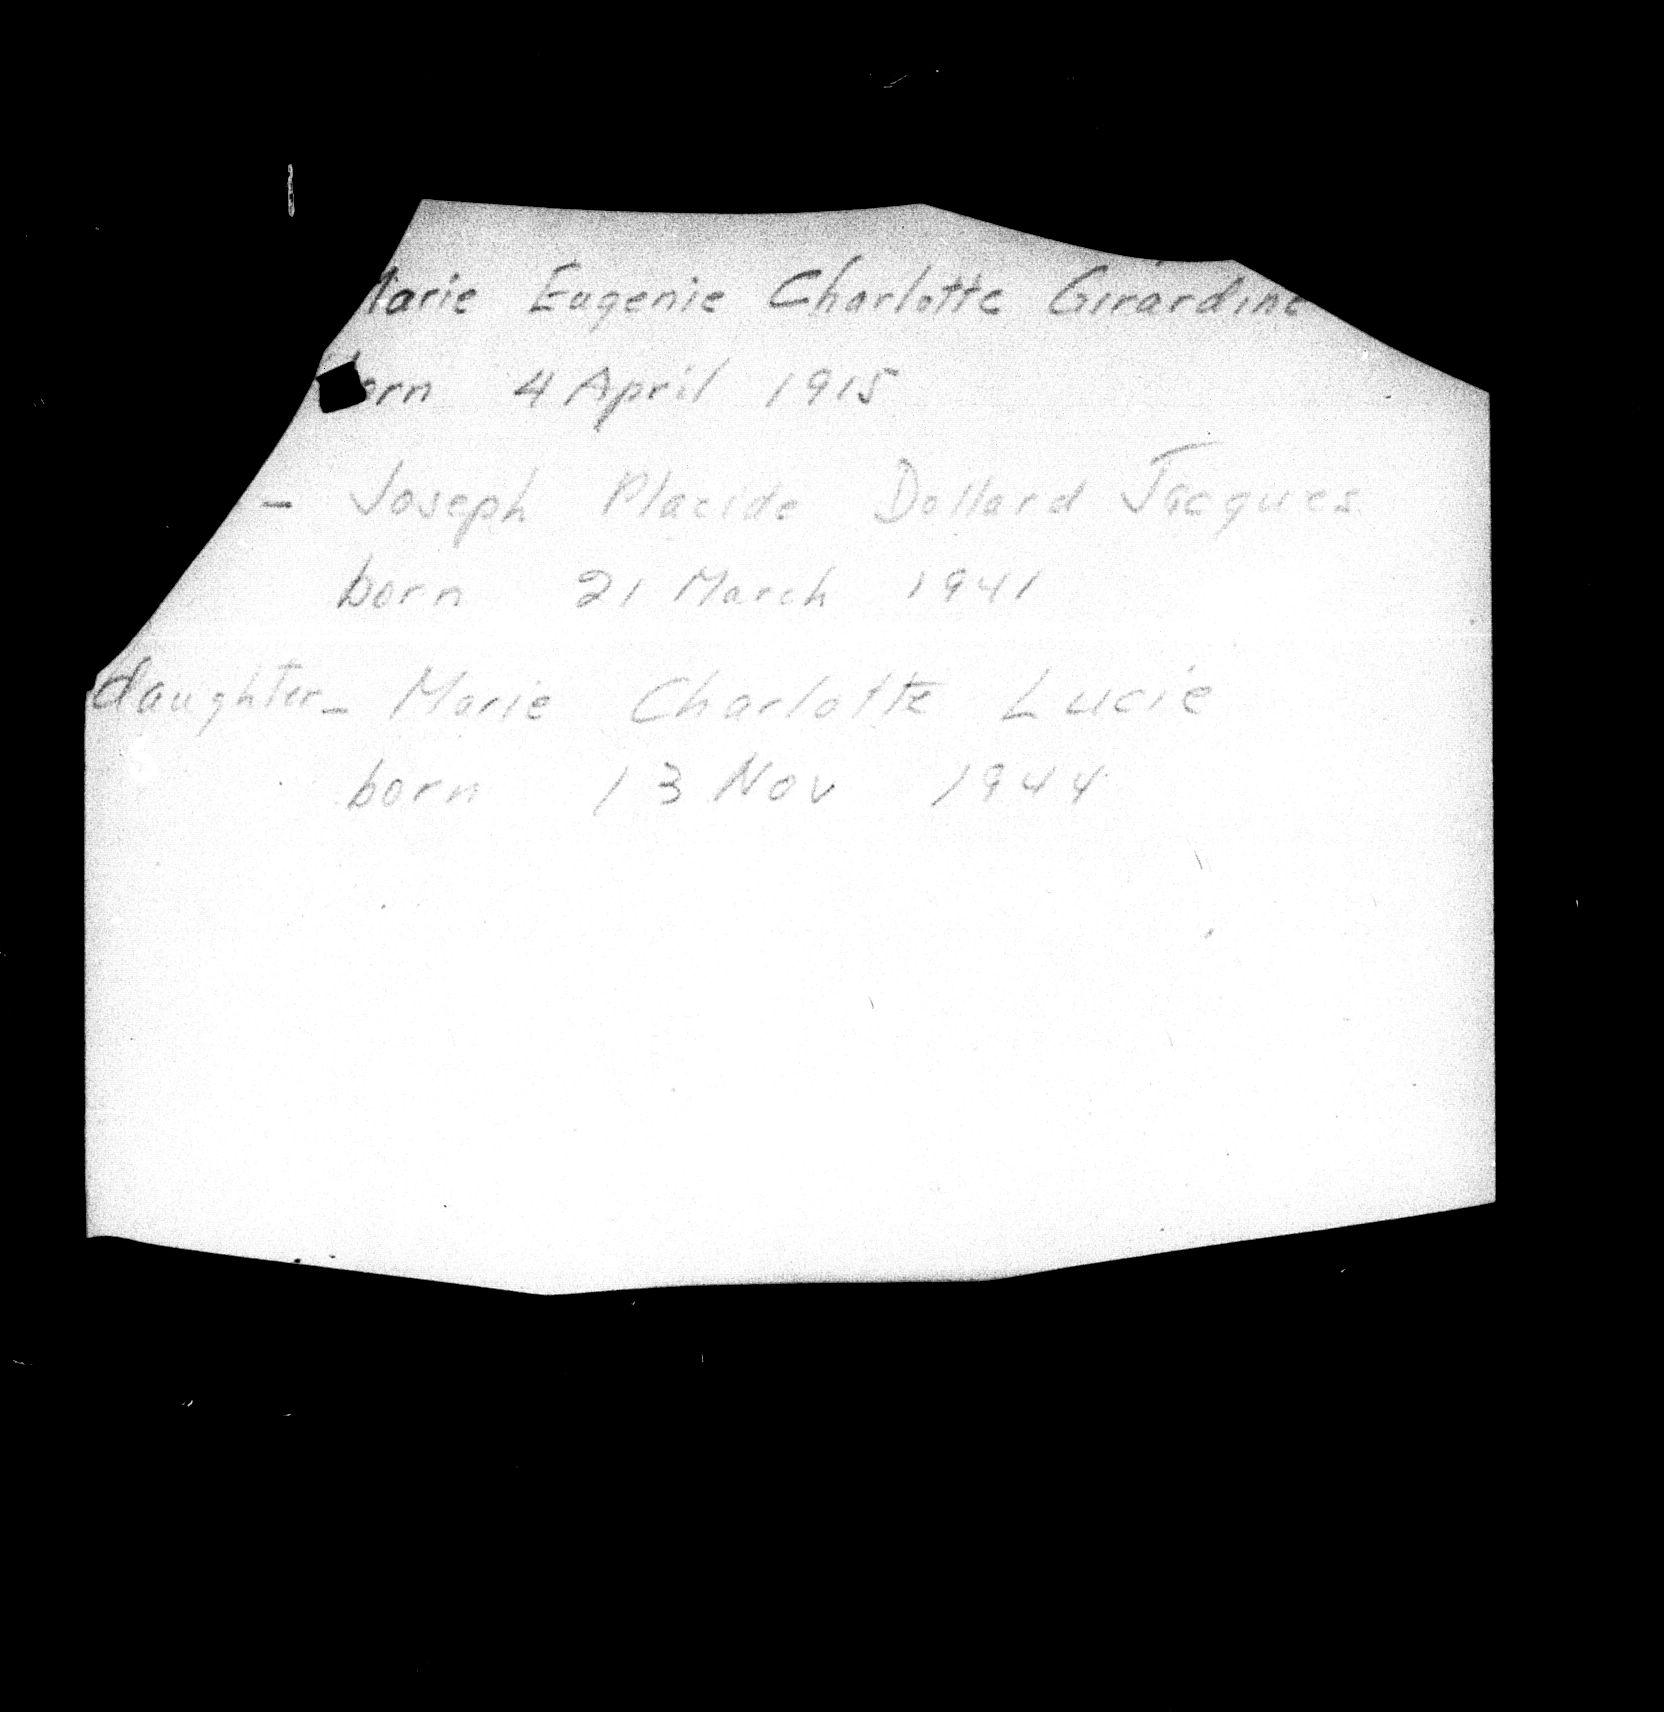 Marie Eugenie Charlotte Girardine
born 4 April 1915
- Joseph Placide Dollard Jacques
born 21 March 1941
daughter - Marie Charlotte Lucie
born 13 Nov 1944